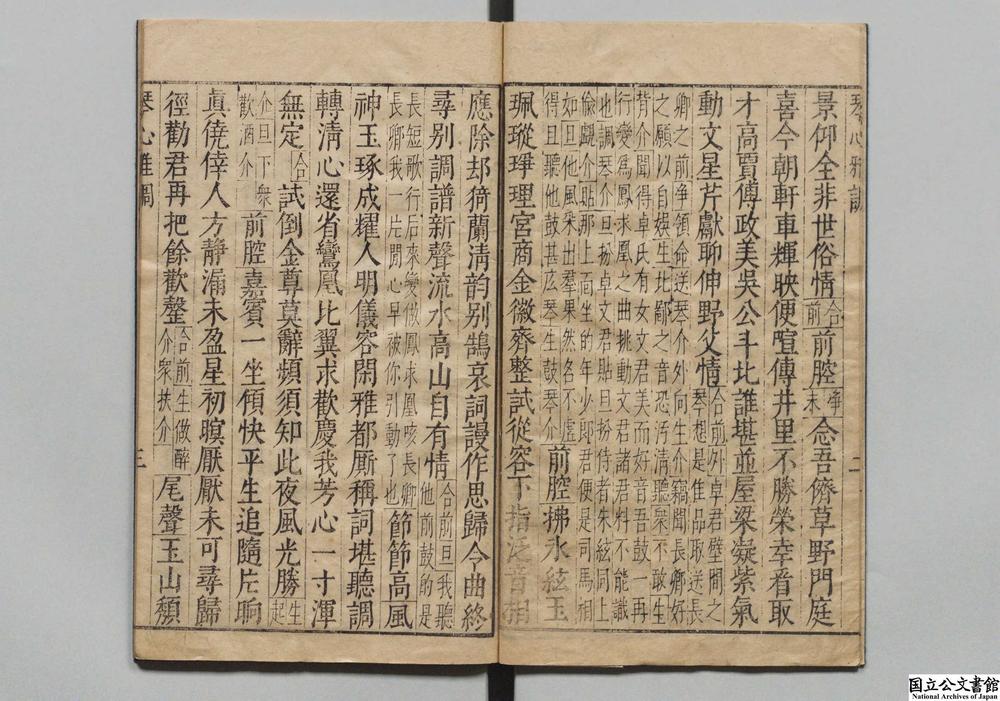 景仰全非世俗情〔合前〕前腔〔淨末〕念吾儕草野門庭
喜今朝軒車輝映便喧傳井里不勝榮幸看取
才高賈傅政美吳公斗北誰堪並屋梁凝紫氣
動文星芹獻聊伸野父情〔合前〕外卓君壁間之琴想是隹品取送長
卿之前淨領命送琴介外向生介竊聞長卿好
之願以自娛生北鄙之音恐汚清聽衆不敢生
背介聞得卓氏有女文君美而好音吾鼓一再
行變爲鳳求凰之曲挑動文君諸君料不能識
也調琴介旦扮卓文君貼旦扮侍者朱絃同上
偸覷介貼那上面坐的年少郎君便是司馬相
如旦他風采出羣果然名不虛
得且聽他鼓甚庅琴生鼓琴介前腔拂氷絃玉
珮瑽琤理宮商金徽齊整試從容下指泛音相
應除却猗蘭淸韵别鵠哀詞謾作思歸令曲終
尋别調譜新聲流水高山自有情〔合前〕旦我聽他前鼓的是
長短歌行后來變做鳳求凰咳長卿
長卿我一片閒心早被你引動了也節節高風
神玉琢成耀人明儀容閑雅都厮稱詞堪聽調
轉淸心還省鸞凰比翼求歡慶我芳心一寸渾
無定〔合〕試倒金尊莫辭頻須知此夜風光勝生起
介旦下衆
歡酒介前腔嘉賓一坐傾快平生追隨片晌
眞僥倖人方靜漏未盈星初暝厭厭未可尋歸
徑勸君再把餘歡罄〔合前〕生做醉介衆扶介尾聲玉山頹
琴心雅調
二
三
国立公文書館
National Archives of Japan